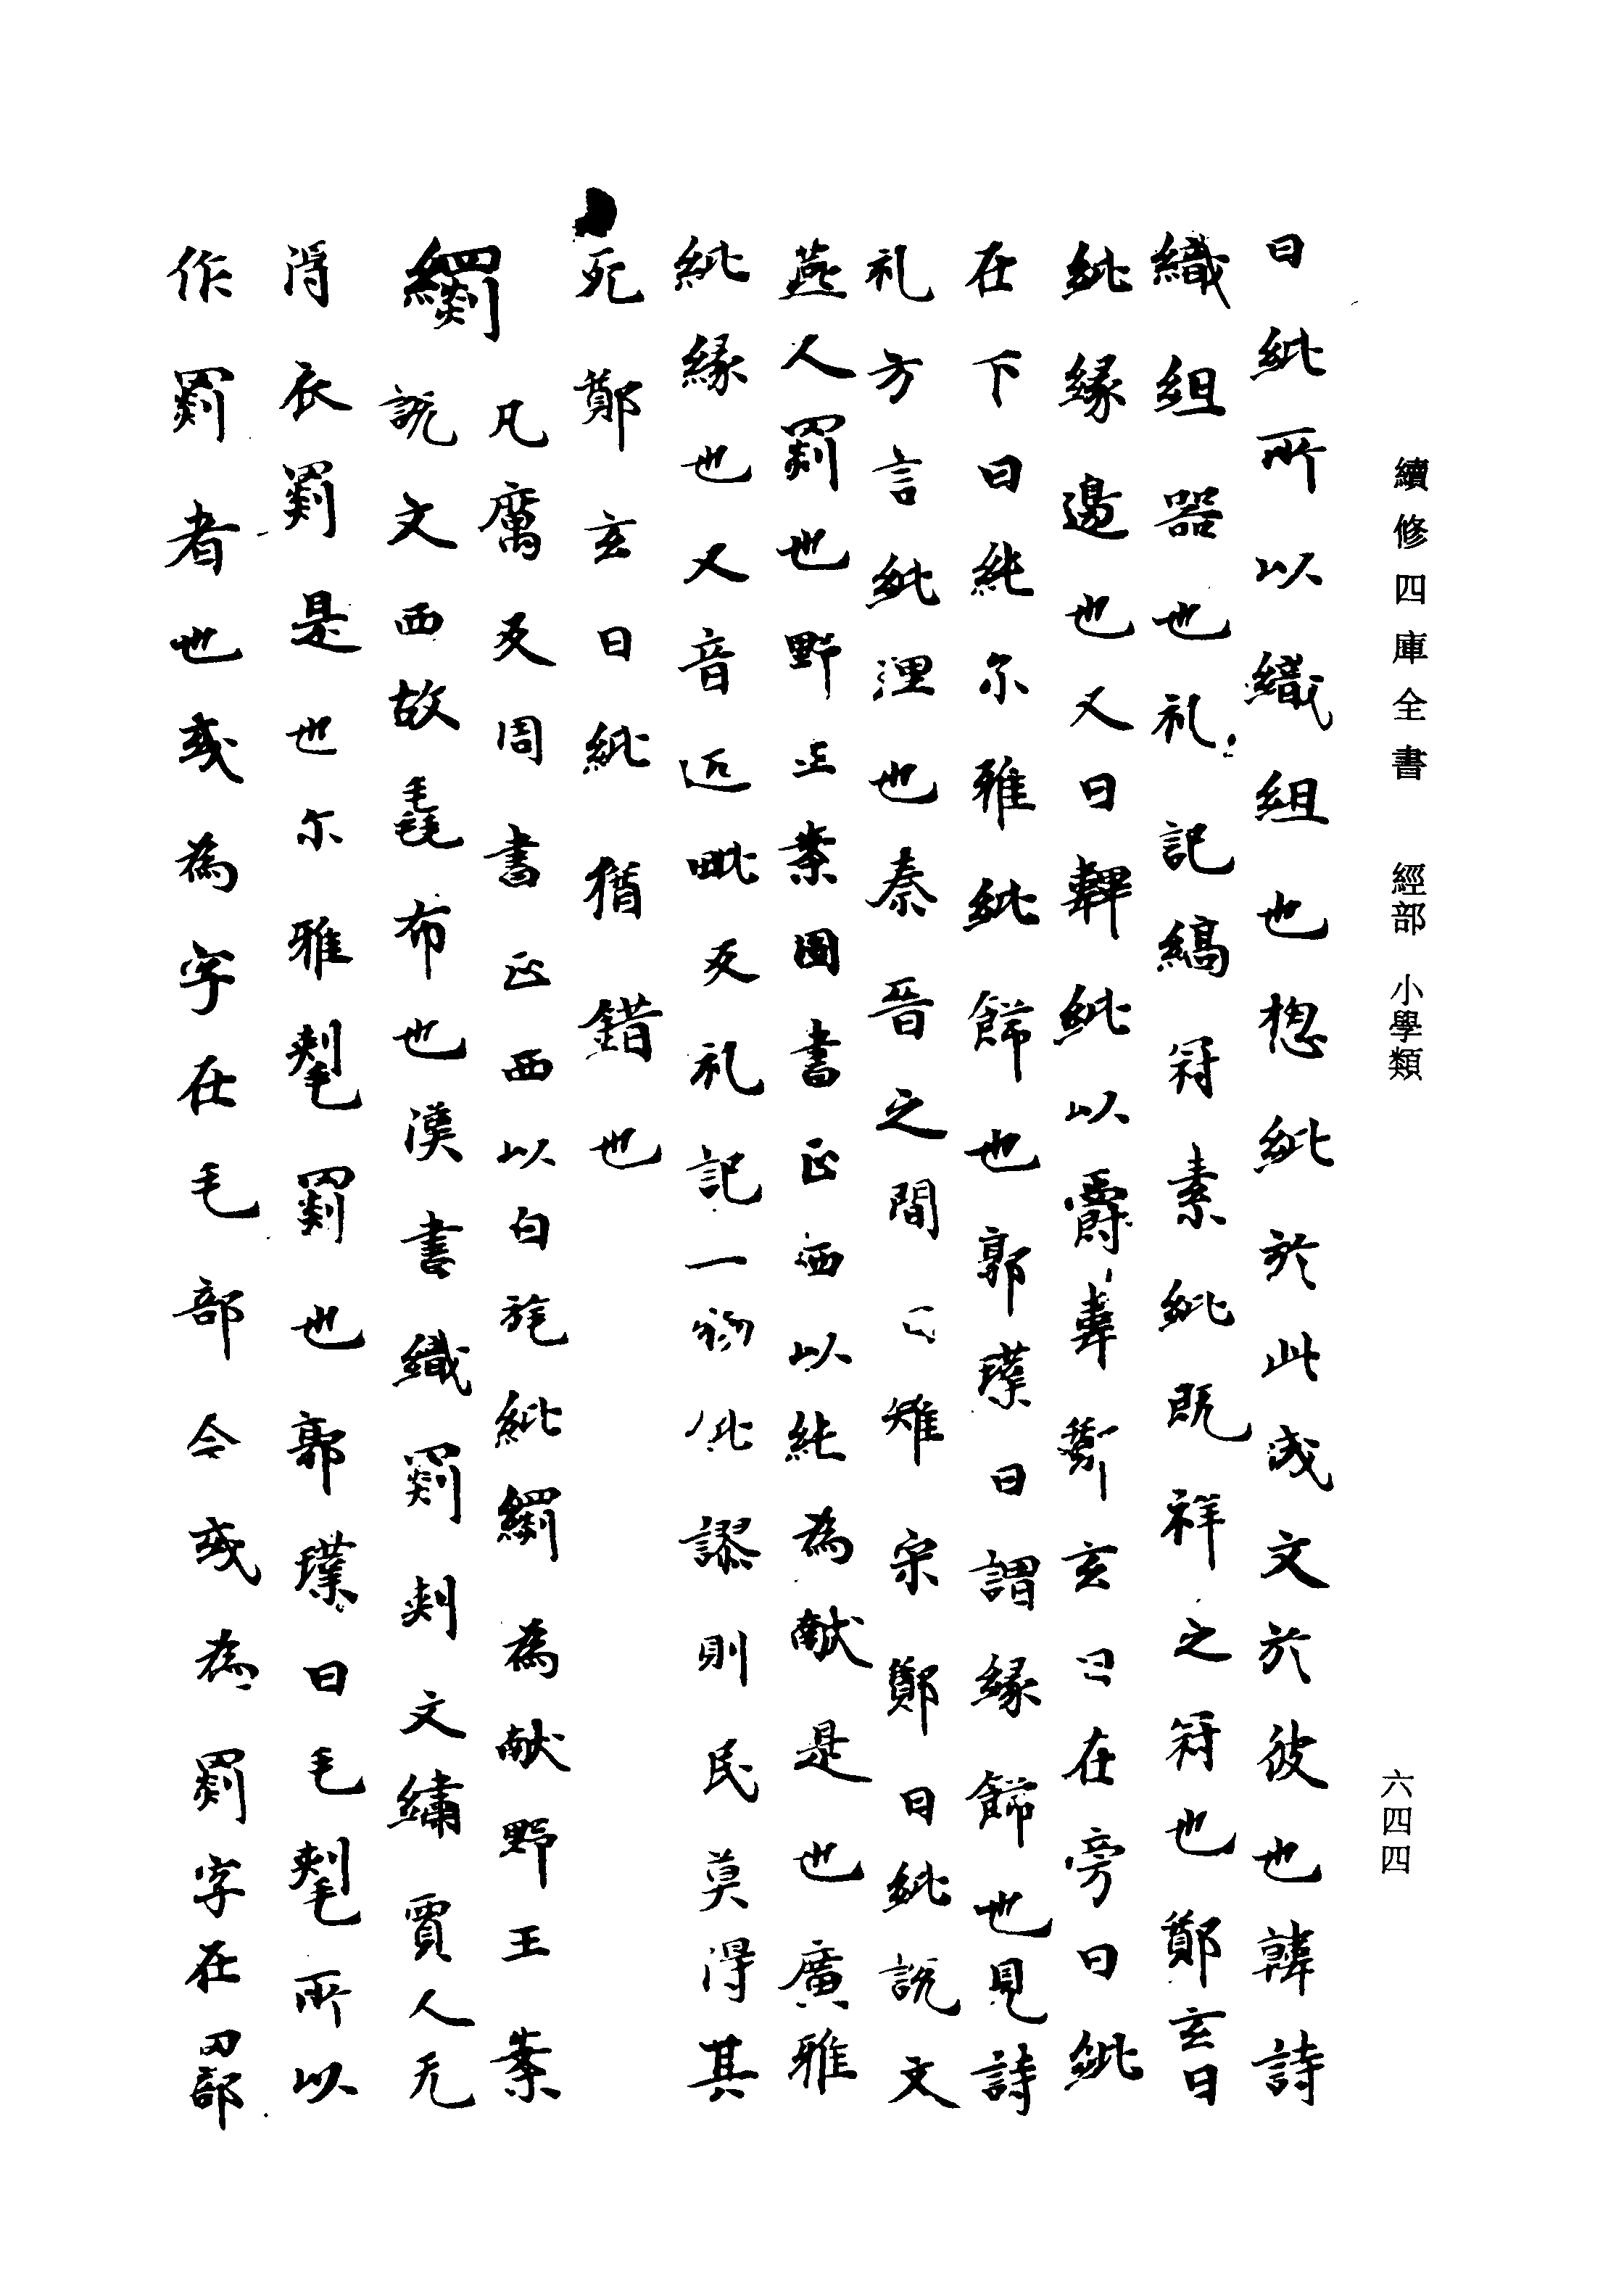 續修四庫全書　經部　小學類
六四四
曰紕所以織組也惣紕於此成文於彼也韓詩
織組器也礼記縞冠素紕既祥之冠也鄭玄曰
紕緣邊也又曰韠紕以爵韋鄭玄曰在旁曰紕
在下曰純尓雅紕餙也郭璞曰謂緣餙也見詩
礼方言紕理也秦晉之間曰雉宋鄭曰紕說文
燕人罽也野王案圖書正西以紕為献是也廣雅
紕緣也又音近毗反礼記一物紕謬則民莫得其
死鄭玄曰紕猶錯也
凡厲反周書正西以白旄紕繝為献野王案
繝說文西故毳布也漢書織罽刾文繡賈人无
得衣罽是也尓雅氂罽也郭璞曰毛氂所以
作罽者也或為字在毛部今或為罽字在罒部